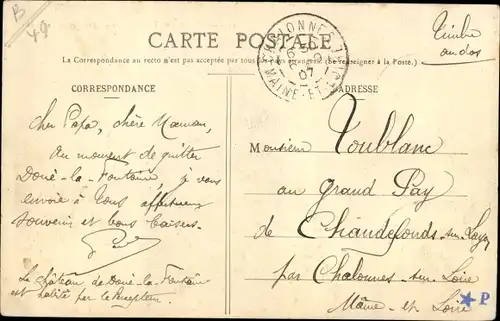 B
49
Timbre
au dos
CARTE POSTALE
La Correspondance au recto n'est pas acceptée par tous les pays étrangers (Se renseigner à la Poste.)
CHALONNES S/L
6 30
07
MAINE-ET-LOIRE
CORRESPONDANCE
ADRESSE
Cher Papa, chère Maman,
Au moment de quitter
Doué-la-Fontaine, je vous
envoie à tous affectueux
souvenir et bons baisers.
Le château de Doué-la-Fontaine
est habité par le Percepteur.
Monsieur Toublanc
au Grand Pay
de Chaudefonds-sur-Layon
par Chalonnes-sur-Loire
Maine-et-Loire
P